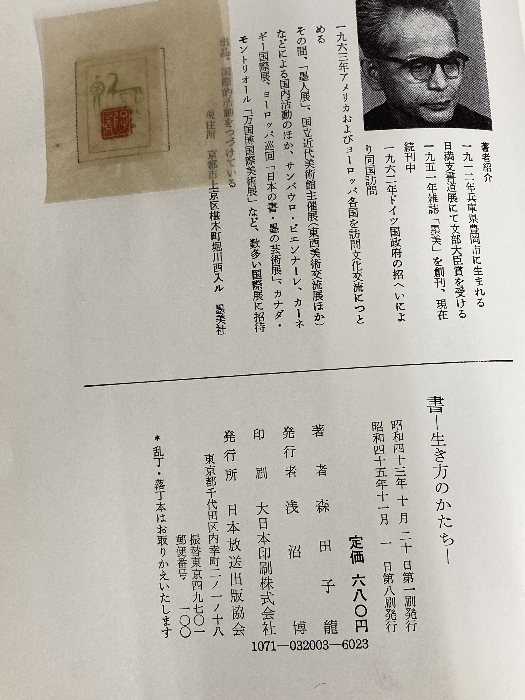 著者紹介
一九一二年兵庫県豊岡市に生まれる
日満支書道展にて文部大臣賞を受ける
一九五一年雑誌「墨美」を創刊、現在
続刊中
一九六二年ドイツ国政府の招へいによ
り同国訪問
一九六三年アメリカおよびヨーロッパ各国を訪問文化交流につと
める
その間、「墨人展」、国立近代美術館主催展(東西美術交流展ほか)
などによる国内活動のほか、サンパウロ・ビエンナーレ、カーネ
ギー国際展、ヨーロッパ巡回「日本の書・墨の芸術展」、カナダ・
モントリオール「万国博国際美術展」など、数多い国際展に招待
出品、国際的活動をつづけている
現住所 京都市上京区椹木町堀川西入ル 墨美社
書—生き方のかたち—
昭和四十三年十月二十日第一刷発行
昭和四十五年十一月一日第八刷発行
定価 六八〇円
著者 森田子龍
発行者 浅沼博
印刷 大日本印刷株式会社
発行所 日本放送出版協会
東京都千代田区内幸町二ノ一ノ十八
振替東京四九七〇一
郵便番号 一〇〇
*乱丁・落丁本はお取りかえいたします
1071—032003—6023